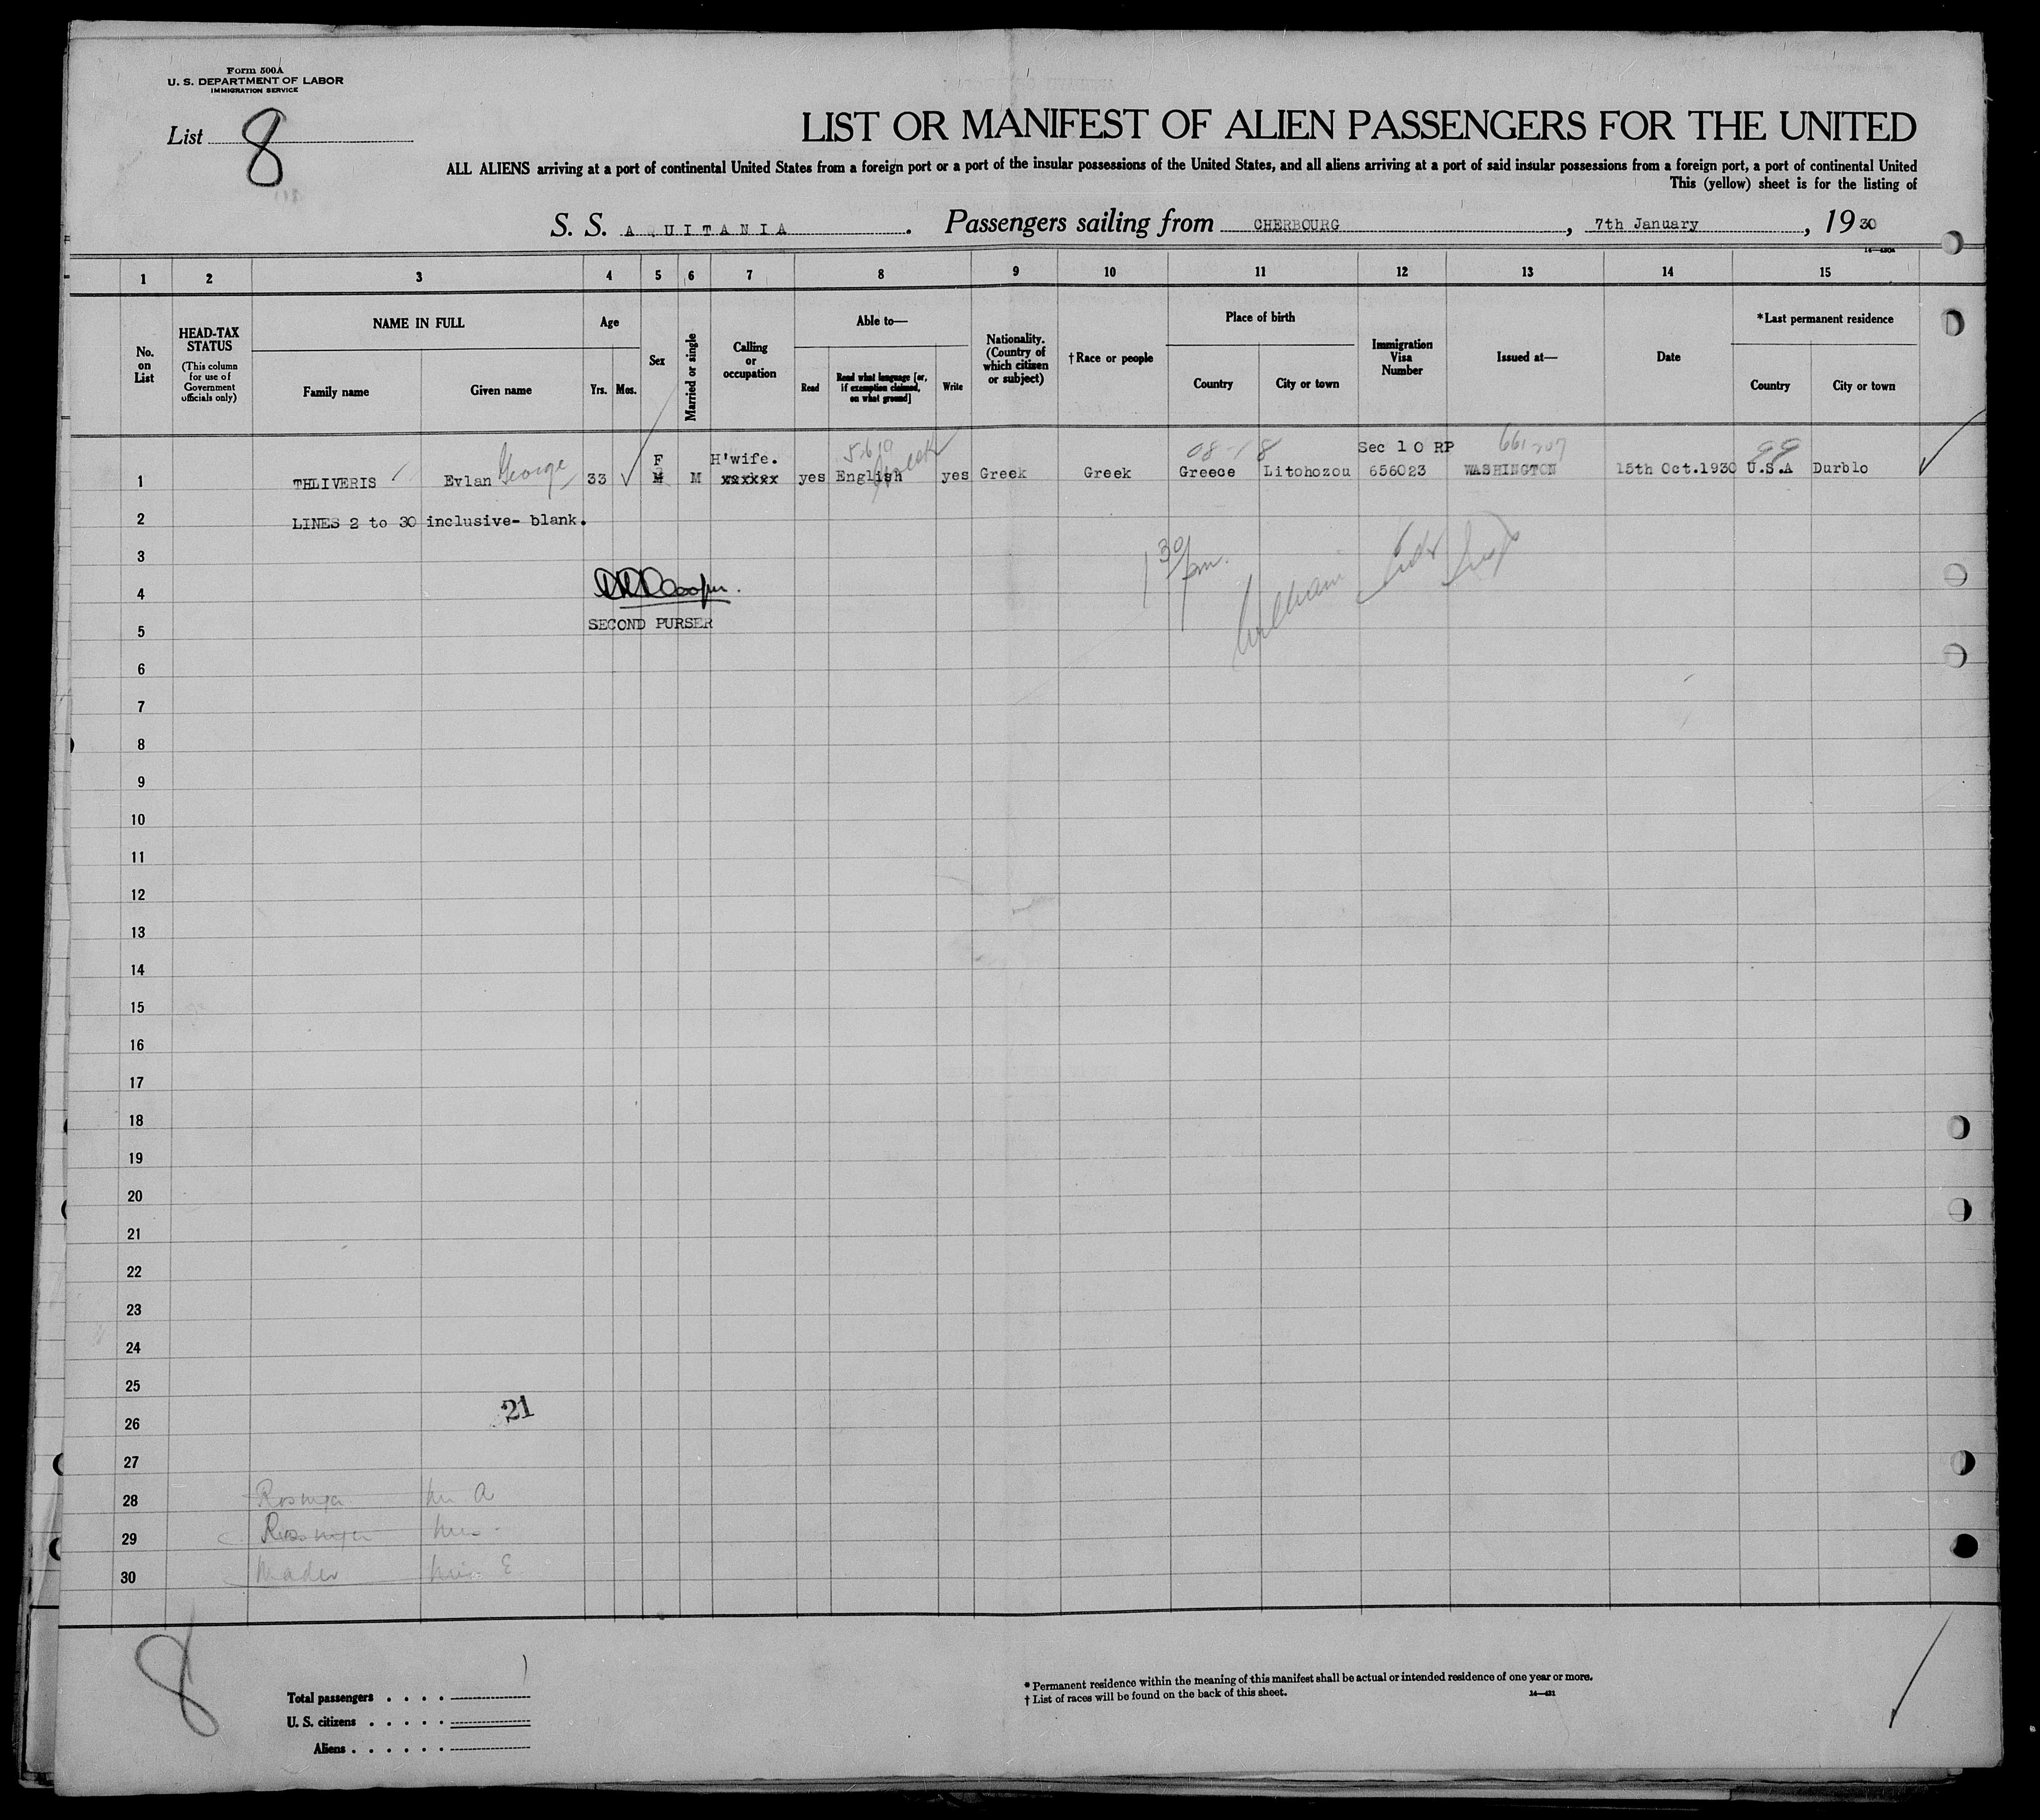 Form 500A
U. S. DEPARTMENT OF LABOR
IMMIGRATION SERVICE
List 8
LIST OR MANIFEST OF ALIEN PASSENGERS FOR THE UNITED
ALL ALIENS arriving at a port of continental United States from a foreign port or a port of the insular possessions of the United States, and all aliens arriving at a port of said insular possessions from a foreign port, a port of continental United
This (yellow) sheet is for the listing of
S. S. A QUITANIA. Passengers sailing from CHERBOURG, 7th January, 19 30
1 2 3 4 5 6 7 8 9 10 11 12 13 14 15
No. on List
HEAD-TAX STATUS
(This column for use of Government officials only)
NAME IN FULL
Family name
Given name
Age
Yrs.
Mos.
Sex
Married or single
Calling or occupation
Able to—
Read
Read what language [or, if exemption claimed, on what ground]
Write
Nationality. (Country of which citizen or subject)
† Race or people
Place of birth
Country
City or town
Immigration Visa Number
Issued at—
Date
*Last permanent residence
Country
City or town
F H'wife. 08-18 Sec 10 RP 99
1 THLIVERIS Evlan George 33 M M xxxxxx yes English Greek yes Greek Greek Greece Litohozou 656023 WASHINGTON 15th Oct.1930 U.S.A Durblo
2 LINES 2 to 30 inclusive- blank.
3 1 30/pm.
4
SECOND PURSER
5
6
7
8
9
10
11
12
13
14
15
16
17
18
19
20
21
22
23
24
25
21
26
27
28
29
30 E
8
Total passengers . . . . 1
U. S. citizens . . . . .
Aliens . . . . . .
* Permanent residence within the meaning of this manifest shall be actual or intended residence of one year or more.
† List of races will be found on the back of this sheet.